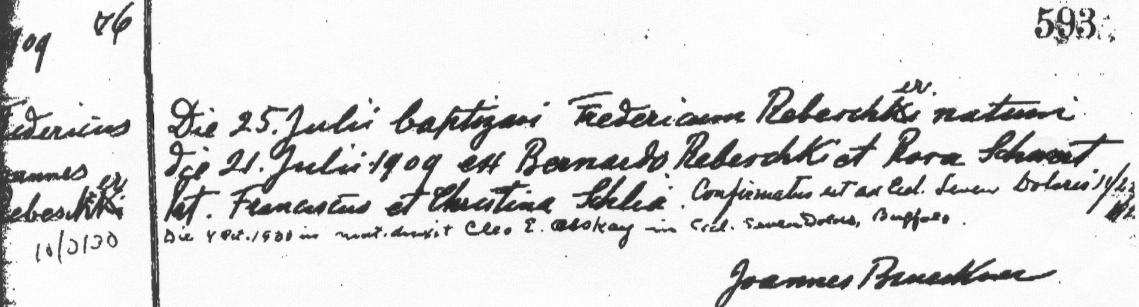 76
593
909
edericus
Die 25. Julii baptizavi Fredericum Rebeschki er. natum
annes
die 21. Julii 1909 ex Bernardo Rebeschki et Rosa
er.
ebeschki
Pt. Franciscus et Christina Schlia. Confirmatus est ad Eccl. Seven Dolors
10/3/30
Die 4 Oct. 1930 in mat. duxit Cleo E. in Eccl. Seven Dolors, Buffalo.
Joannes Brueckner